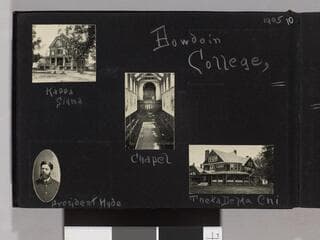 1905 10
Bowdoin
College,
Kappa
Sigma
Chapel
President Hyde
Theta Delta Chi